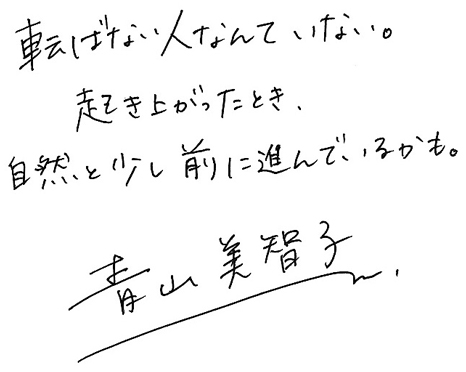 転ばない人なんていない。
起き上がったとき、
自然と少し前に進んでいるかも。
青山美智子